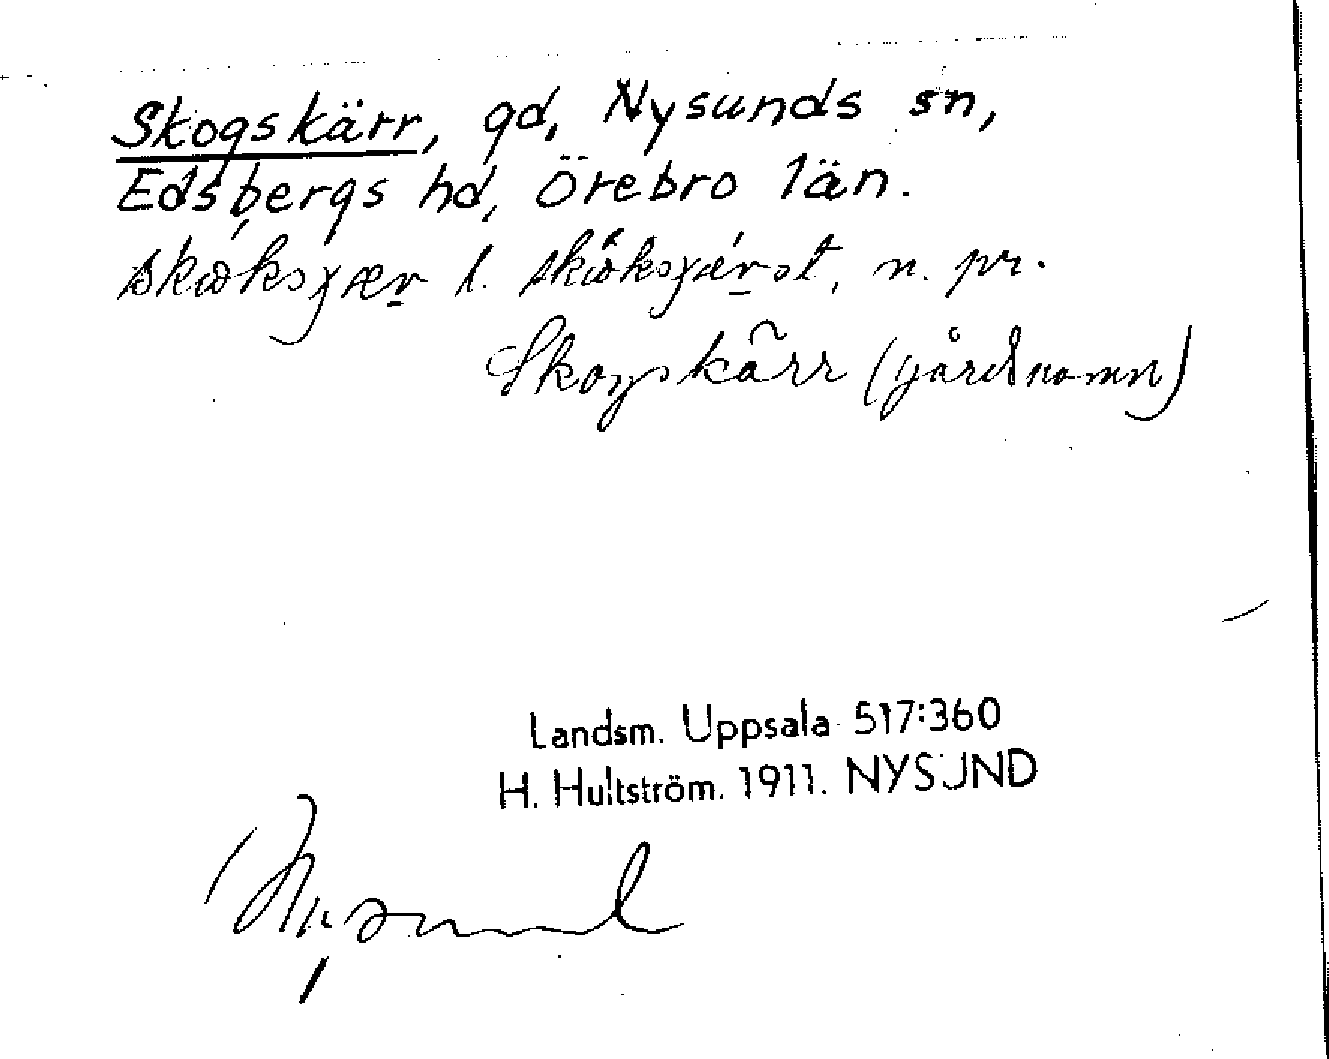 Skogskärr, gd, Nysunds sn,
Edsbergs hd, Örebro län.
l. n. pr.
Skogskärr (gårdnamn)
Landsm. Uppsala 517:360
H. Hultström. 1911. NYSUND
Nysund